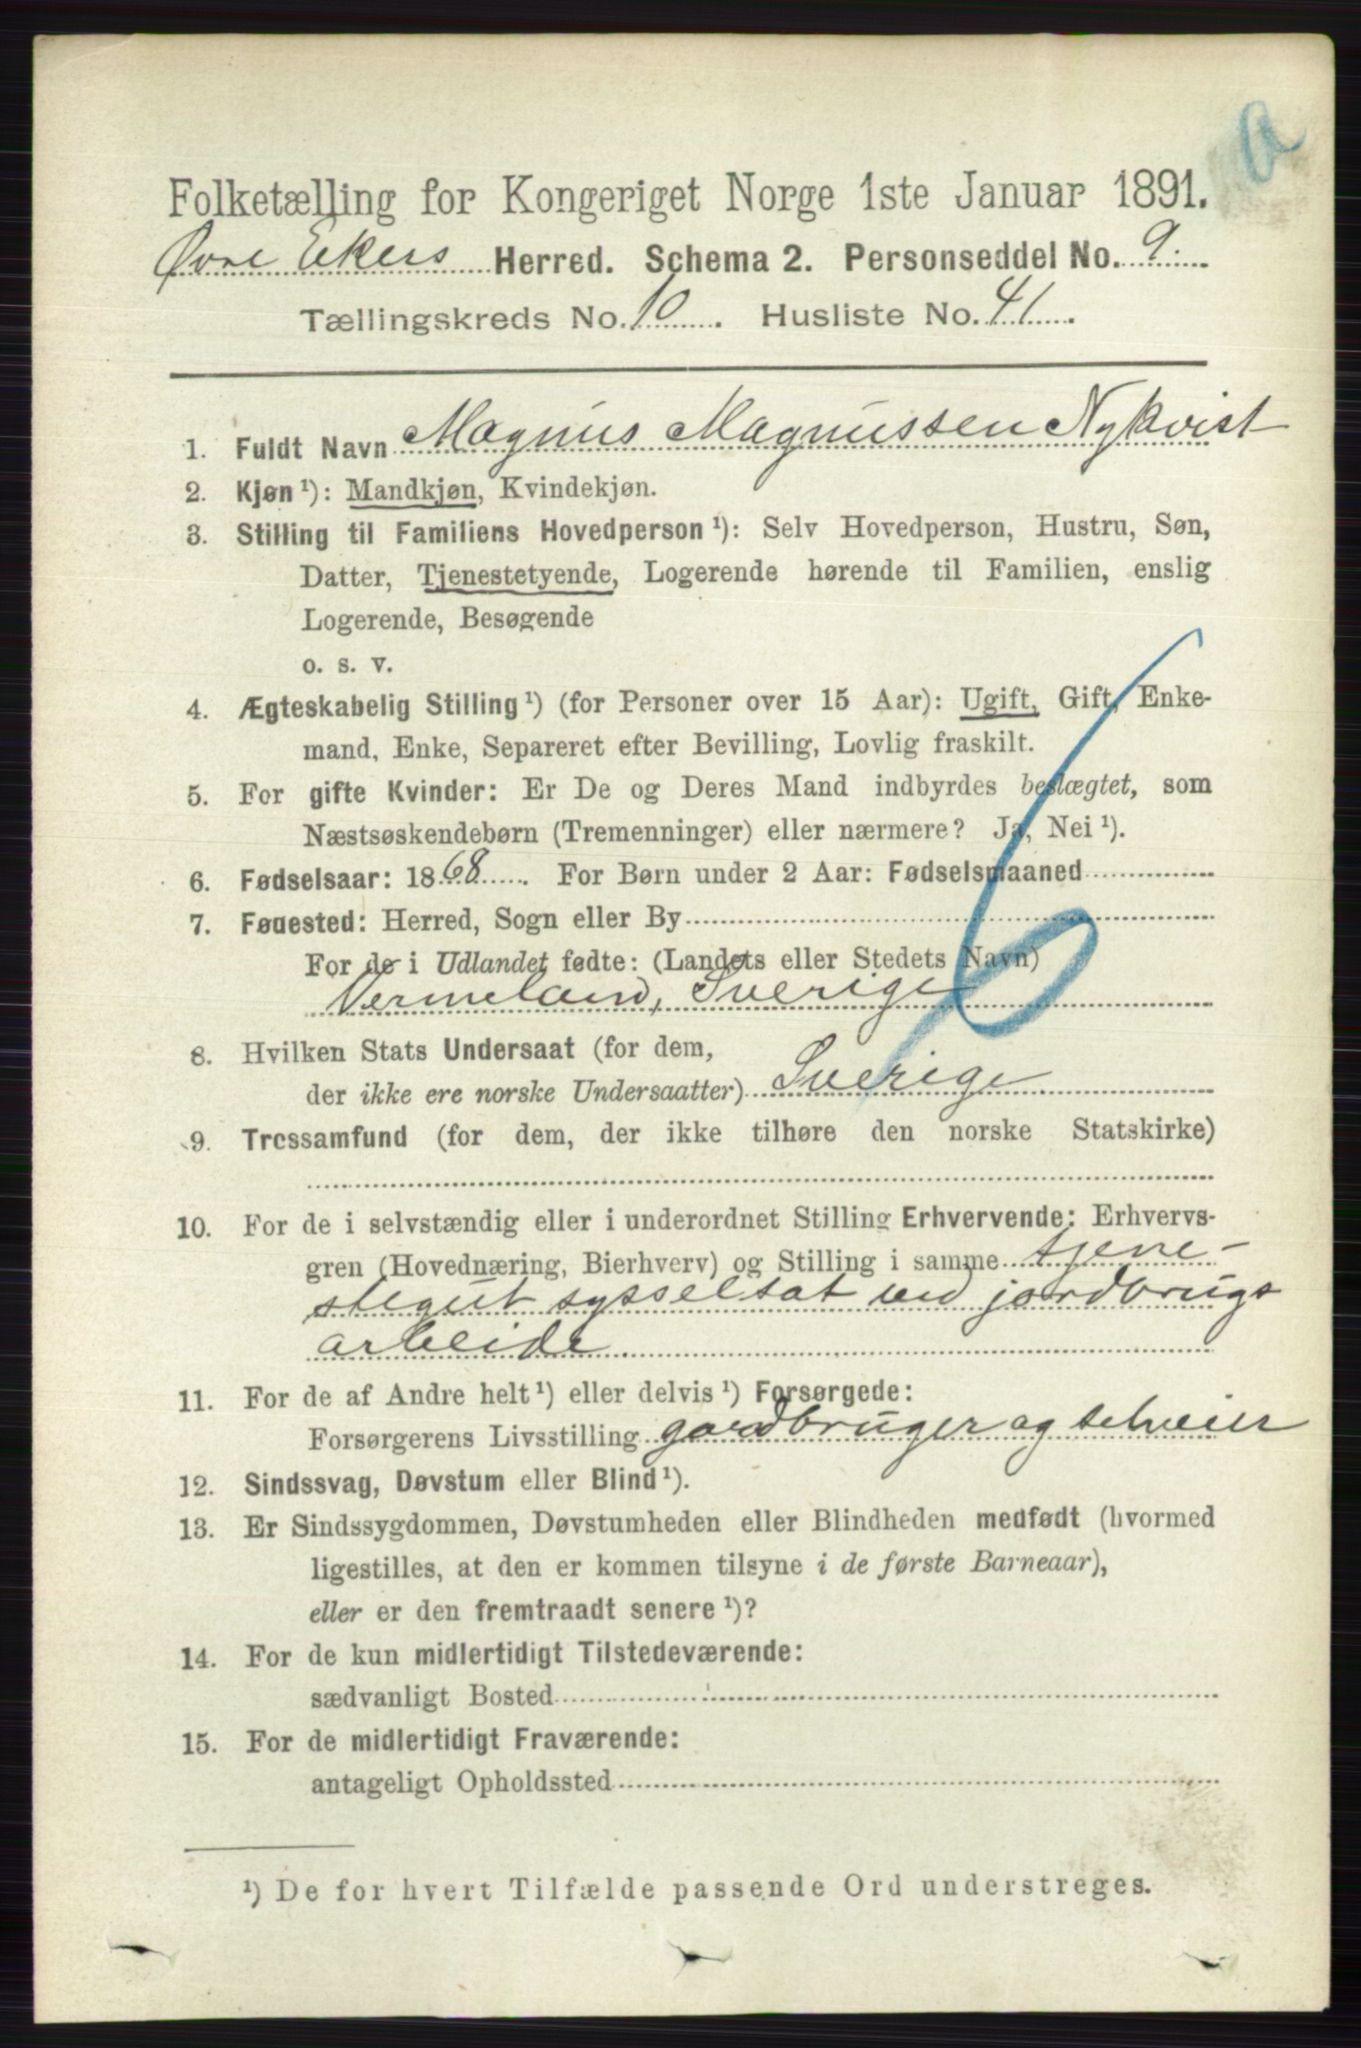 a
Folketælling for Kongeriget Norge 1ste Januar 1891.
Øvre Ekers Herred. Schema 2. Personseddel No. 9.
Tællingskreds No. 10. Husliste No. 41.
1. Fuldt Navn Magnus Magnussen Nykvist
2. Kjøn¹): Mandkjøn, Kvindekjøn.
3. Stilling til Familiens Hovedperson¹): Selv Hovedperson, Hustru, Søn,
Datter, Tjenestetyende, Logerende hørende til Familien, enslig
Logerende, Besøgende
o. s. v.
4. Ægteskabelig Stilling¹) (for Personer over 15 Aar): Ugift, Gift, Enke-
mand, Enke, Separeret efter Bevilling, Lovlig fraskilt.
5. For gifte Kvinder: Er De og Deres Mand indbyrdes beslægtet, som
Næstsøskendebørn (Tremenninger) eller nærmere? Ja, Nei¹).
6. Fødselsaar: 1868. For Børn under 2 Aar: Fødselsmaaned
7. Fødested: Herred, Sogn eller By
For de i Udlandet fødte: (Landets eller Stedets Navn)
Vermeland, Sverige
8. Hvilken Stats Undersaat (for dem,
der ikke ere norske Undersaatter) Sverige
9. Trossamfund (for dem, der ikke tilhøre den norske Statskirke)
10. For de i selvstændig eller i underordnet Stilling Erhvervende: Erhvervs-
gren (Hovednæring, Bierhverv) og Stilling i samme tjene-
stegut sysselsat ved jordbrugs
arbeide
11. For de af Andre helt¹) eller delvis¹) Forsørgede:
Forsørgerens Livsstilling gardbruger og selveier
12. Sindssvag, Døvstum eller Blind¹).
13. Er Sindssygdommen, Døvstumheden eller Blindheden medfødt (hvormed
ligestilles, at den er kommen tilsyne i de første Barneaar),
eller er den fremtraadt senere¹)?
14. For de kun midlertidigt Tilstedeværende:
sædvanligt Bosted
15. For de midlertidigt Fraværende:
antageligt Opholdssted
¹) De for hvert Tilfælde passende Ord understreges.